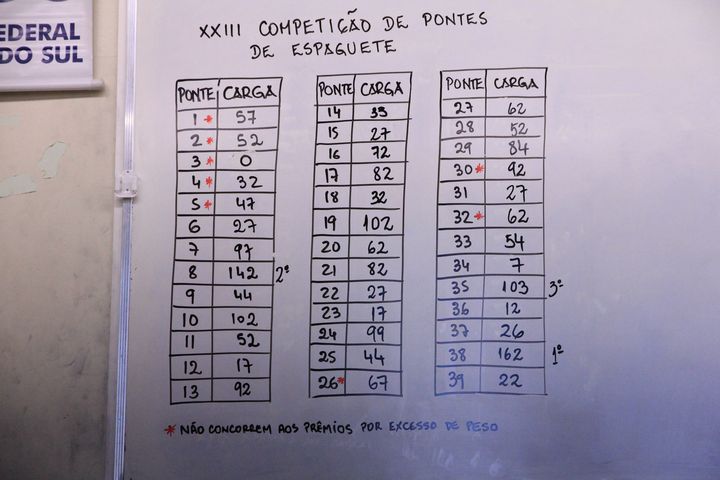 EDERAL
DO SUL
XXIII COMPETIÇÃO DE PONTES
DE ESPAGUETE
PONTE CARGA
1* 57
2* 52
3* 0
4* 32
5* 47
6 27
7 97
8 142 2º
9 44
10 102
11 52
12 17
13 92
PONTE CARGA
14 39
15 27
16 72
17 82
18 32
19 102
20 62
21 82
22 27
23 17
24 99
25 44
26* 67
PONTE CARGA
27 62
28 52
29 84
30* 92
31 27
32* 62
33 54
34 7
35 103 3º
36 12
37 26
38 162 1º
39 22
* NÃO CONCORREM AOS PRÊMIOS POR EXCESSO DE PESO